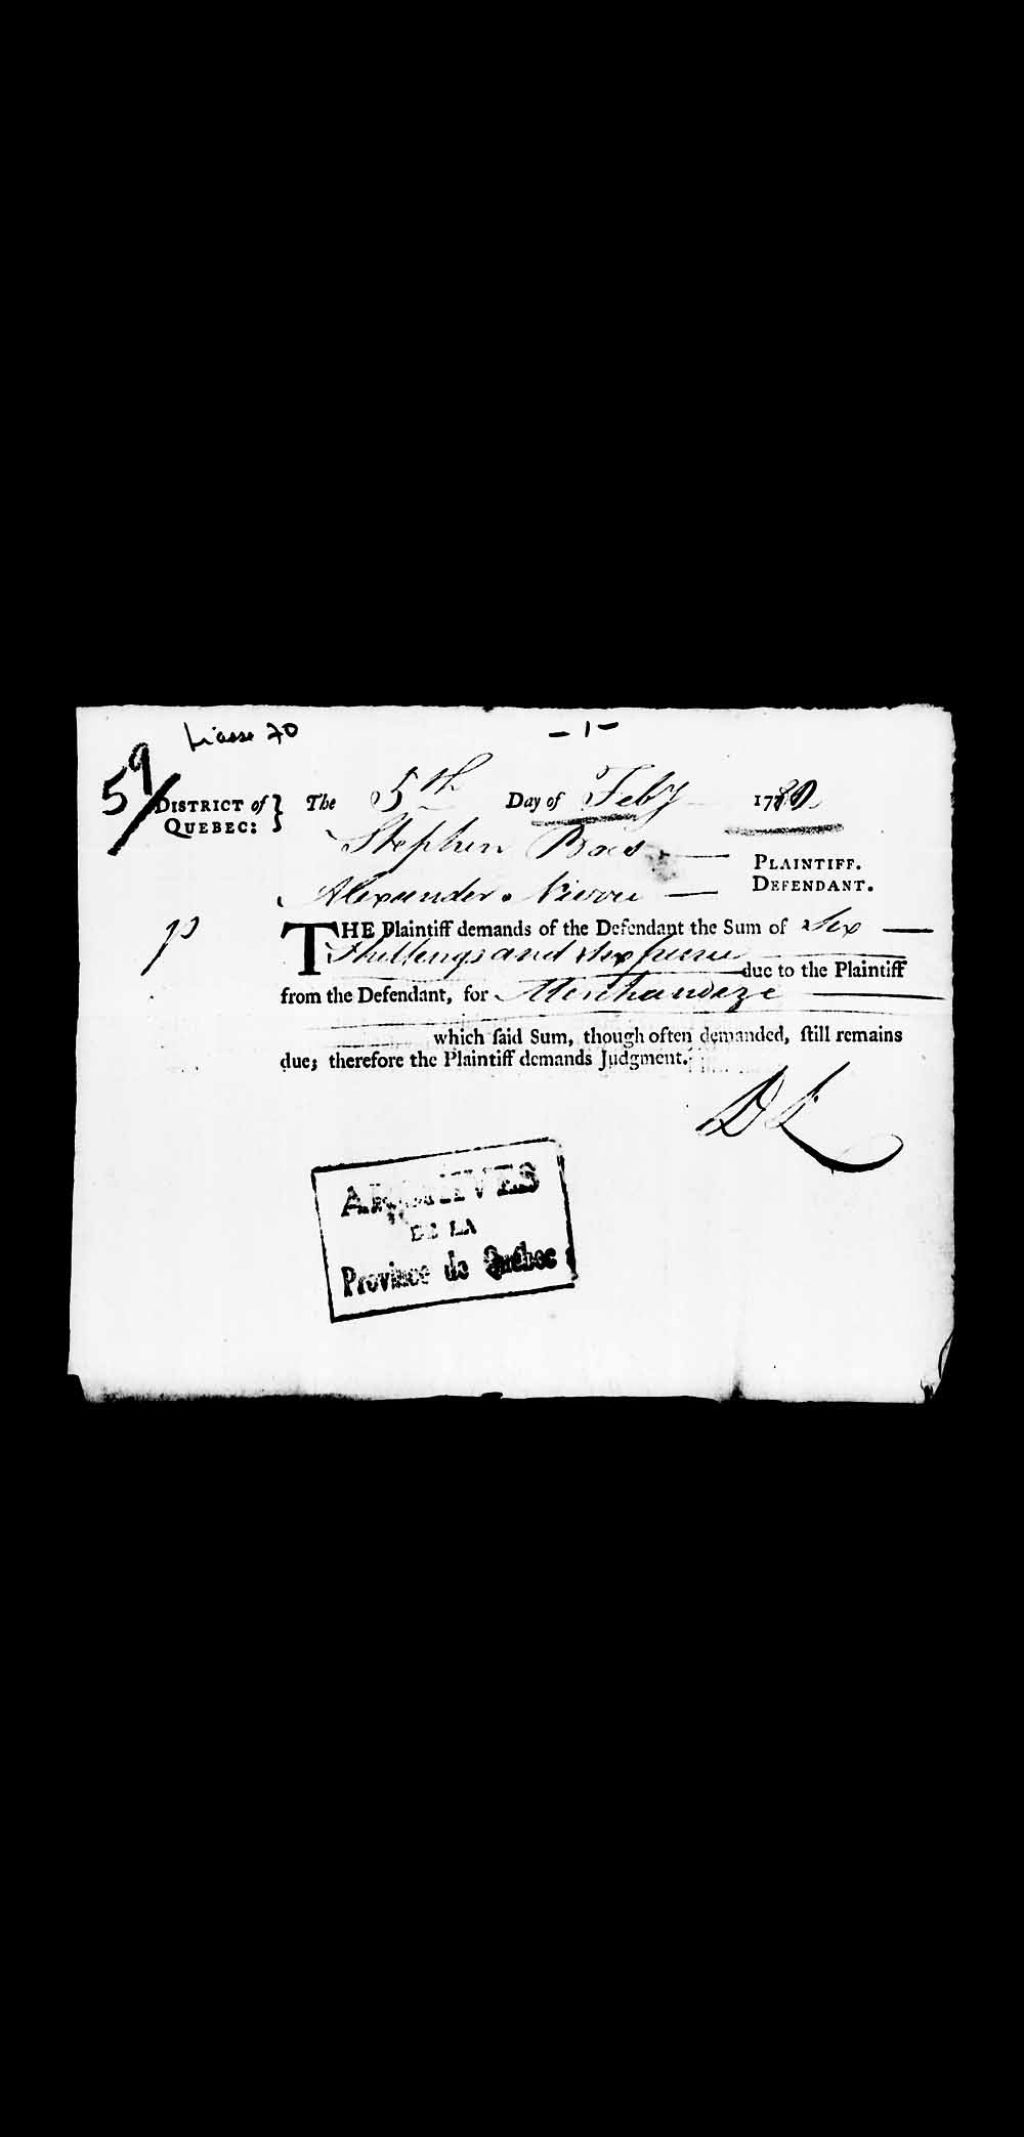 Liasse 70
- 1 -
59
DISTRICT of QUEBEC: } The 5th Day of Feby 1780
Stephen PLAINTIFF.
Alexander DEFENDANT.
THE Plaintiff demands of the Defendant the Sum of Six
Shillengs and six pence due to the Plaintiff
from the Defendant, for Merchandize
which ſaid Sum, though often demanded, ſtill remains
due; therefore the Plaintiff demands Judgment.
ARCHIVES
DE LA
Province de Québec